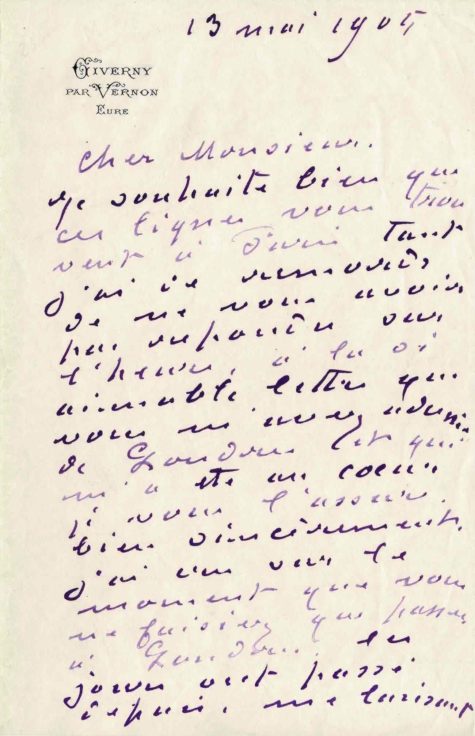 13 mai 1905
GIVERNY
PAR VERNON
EURE
Cher Monsieur.
Je souhaite bien que
ces lignes vous trou
vent à Paris tant
j'ai de remords
de ne vous avoir
pas répondu sur
l'heure, à la si
aimable lettre que
vous m'avez adressée
de Londres et qui
m'a été au cœur
je vous l'assure.
bien sincèrement.
j'ai cru sur le
moment que vous
ne faisiez que passer
à Londres. les
jours ont passé
depuis, me laissant